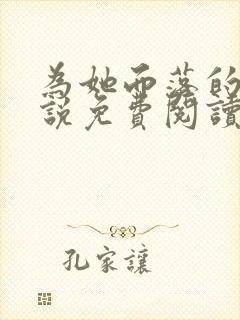 為她而落的
說免費閱讀
孔家讓